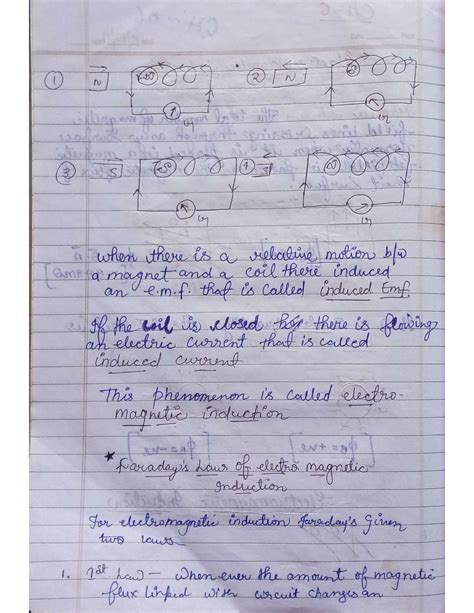 ① N ② N
G G
③ S ④ S
G G
when there is a relative motion b/w
a magnet and a coil there induced
an e.m.f. that is called induced Emf.
If the coil is closed there is flowing
an electric current that is called
induced current
This phenomenon is called electro-
magnetic induction
* Faraday's Laws of electro magnetic
Induction
For electromagnetic induction Faraday's Given
two laws
1. 1st Law — when ever the amount of magnetic
flux linked with circuit changes an